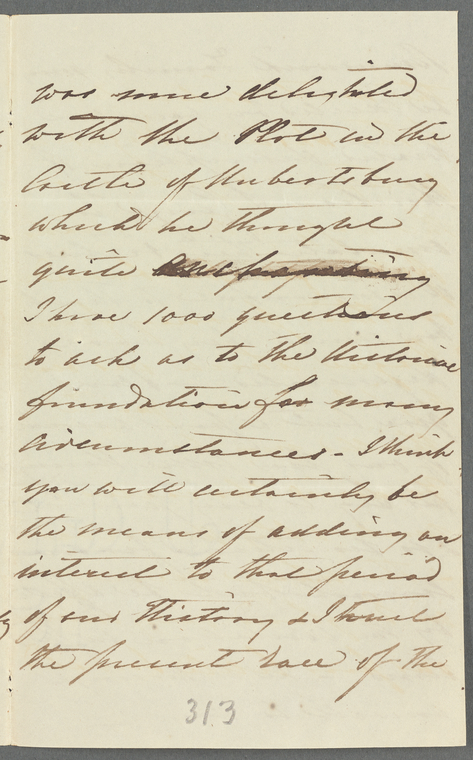 was more delighted
with the Plot in the
Castle of Hubertsburg
which he thought
quite
I have 1000 questions
to ask as to the Historical
foundation for many
circumstances - I think
you will certainly be
the means of adding an
interest to that period
of our History & I trust
the present race of the
313